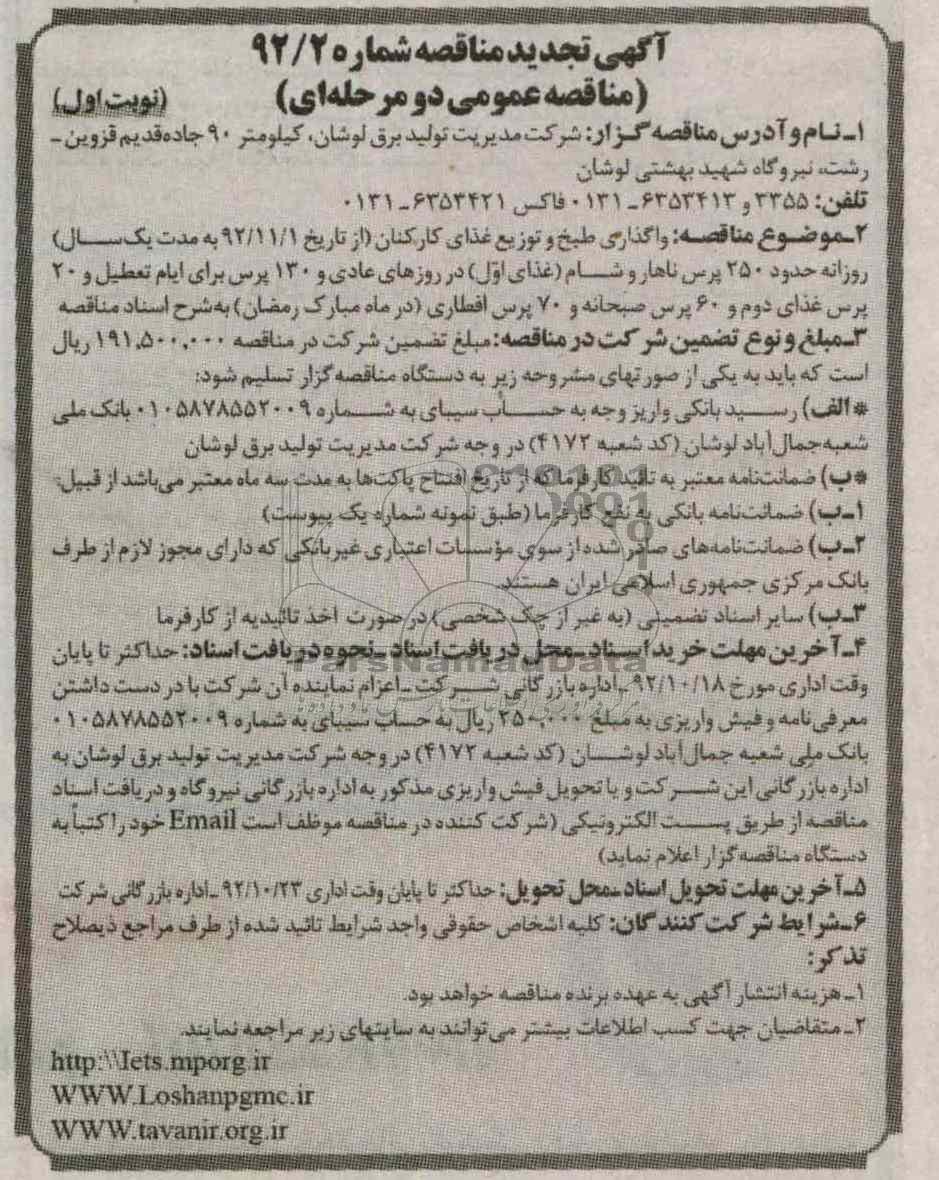 آگهی تجدید مناقصه شماره ۹۲/۲
(مناقصه عمومی دو مرحله‌ای) (نوبت اول)
۱ـ نـام و آدرس مناقصه گـزار: شرکت مدیریت تولید برق لوشان، کیلومتر ۹۰ جاده‌قدیم قزوین ـ
رشت، نیروگاه شهید بهشتی لوشان
تلفن: ۳۳۵۵ و ۶۳۵۳۴۱۳ـ۰۱۳۱ فاکس ۶۳۵۳۴۲۱ـ۰۱۳۱
۲ـموضـوع مناقصـه: واگذاری طبخ و توزیع غذای کارکنان (از تاریخ ۹۲/۱۱/۱ به مدت یک‌سـال)
روزانه حدود ۲۵۰ پرس ناهار و شـام (غذای اوّل) در روزهای عادی و ۱۳۰ پرس برای ایام تعطیل و ۲۰
پرس غذای دوم و ۶۰ پرس صبحانه و ۷۰ پرس افطاری (در ماه مبارک رمضان) به‌شرح اسناد مناقصه
۳ـمبلغ و نوع تضمین شرکت در مناقصه: مبلغ تضمین شرکت در مناقصه ۱۹۱,۵۰۰,۰۰۰ ریال
است که باید به یکی از صورتهای مشروحه زیر به دستگاه مناقصه‌گزار تسلیم شود:
*الف) رسـید بانکی واریز وجه به حسـاب سیبای به شـماره ۰۱۰۵۸۷۸۵۵۲۰۰۹ بانک ملی
شعبه‌جمال‌آباد لوشان (کد شعبه ۴۱۷۲) در وجه شرکت مدیریت تولید برق لوشان
*ب) ضمانت‌نامه معتبر به تائید کارفرما که از تاریخ افتتاح پاکت‌ها به مدت سه ماه معتبر می‌باشد از قبیل:
۱ـب) ضمانت‌نامه بانکی به نفع کارفرما (طبق نمونه شماره یک پیوست)
۲ـب) ضمانت‌نامه‌های صادر شده از سوی مؤسسات اعتباری غیربانکی که دارای مجوز لازم از طرف
بانک مرکزی جمهوری اسلامی ایران هستند.
۳ـب) سایر اسناد تضمینی (به غیر از چک شخصی) در صورت اخذ تائیدیه از کارفرما
۴ـآخرین مهلت خرید اسـناد ـمحل دریافت اسناد ـنحوه دریافت اسناد: حداکثر تا پایان
ParsNamadData
وقت اداری مورخ ۹۲/۱۰/۱۸ ـ اداره بازرگانی شـرکت ـ اعزام نماینده آن شرکت با در دست داشتن
معرفی‌نامه و فیش واریزی به مبلغ ۲۵۰,۰۰۰ ریال به حساب سیبای به شماره ۰۱۰۵۸۷۸۵۵۲۰۰۹
بانک ملی شعبه جمال‌آباد لوشـان (کد شعبه ۴۱۷۲) در وجه شرکت مدیریت تولید برق لوشان به
اداره بازرگانی این شـرکت و یا تحویل فیش واریزی مذکور به اداره بازرگانی نیروگاه و دریافت اسناد
مناقصه از طریق پسـت الکترونیکی (شرکت کننده در مناقصه موظف است Email خود را کتباً به
دستگاه مناقصه‌گزار اعلام نماید)
۵ـآخرین مهلت تحویل اسناد ـمحل تحویل: حداکثر تا پایان وقت اداری ۹۲/۱۰/۲۳ ـ اداره بازرگانی شرکت
۶ـشرایط شرکت کنندگان: کلیه اشخاص حقوقی واجد شرایط تائید شده از طرف مراجع ذیصلاح
تذکر:
۱ـ هزینه انتشار آگهی به عهده برنده مناقصه خواهد بود.
۲ـ متقاضیان جهت کسب اطلاعات بیشتر می‌توانند به سایتهای زیر مراجعه نمایند.
http:\\Iets.mporg.ir
WWW.Loshanpgmc.ir
WWW.tavanir.org.ir